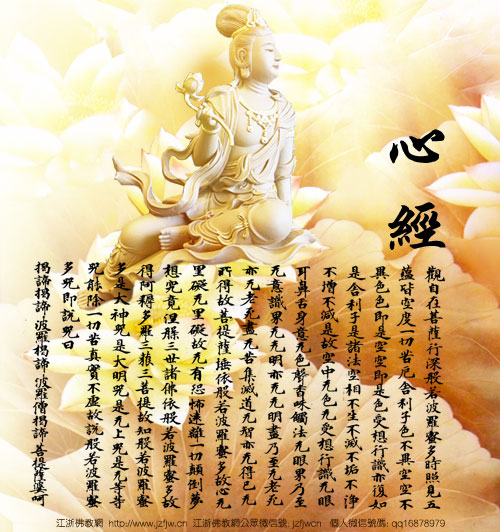 心經
觀自在菩薩行深般若波羅蜜多時照見五
蘊皆空度一切苦厄舍利子色不異空空不
異色色即是空空即是色受想行識亦復如
是舍利子是諸法空相不生不滅不垢不淨
不增不減是故空中无色无受想行識无眼
耳鼻舌身意无色聲香味觸法无眼界乃至
无意識界无无明亦无无明盡乃至无老死
亦无老死盡无苦集滅道无智亦无得以无
所得故菩提薩埵依般若波羅蜜多故心无
罣礙无罣礙故无有恐怖遠離一切顛倒夢
想究竟涅槃三世諸佛依般若波羅蜜多故
得阿耨多羅三藐三菩提故知般若波羅蜜
多是大神呪是大明呪是无上呪是无等等
呪能除一切苦真實不虛故說般若波羅蜜
多呪即說呪曰
揭諦揭諦 波羅揭諦 波羅僧揭諦 菩提薩婆呵
江浙佛教網 http://www.jzfjw.cn 江浙佛教網公眾微信號: jzfjwcn 個人微信號碼: qq16878979